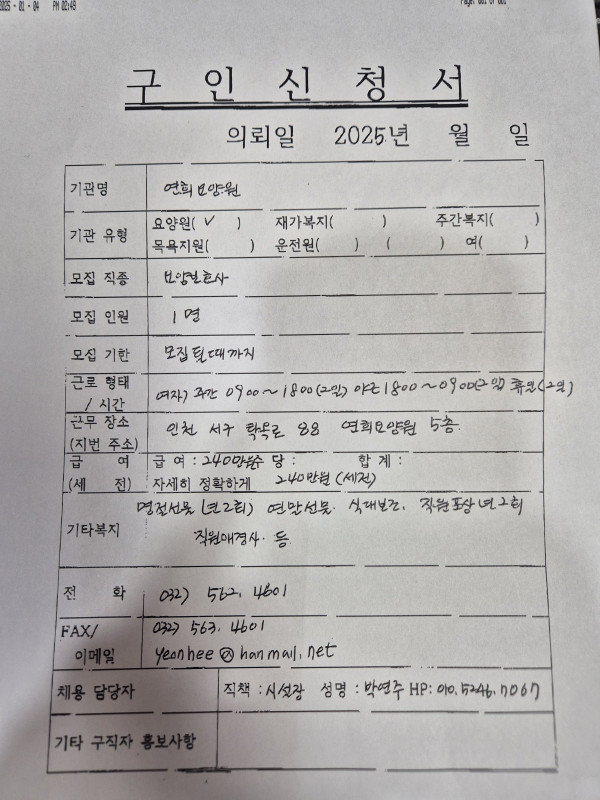 2025 - 01 - 04 PM 02:48
구 인 신 청 서
의뢰일 2025년 월 일
기관명 연희요양원
기관 유형 요양원( ✓ ) 재가복지( ) 주간복지( )
목욕지원( ) 운전원( ) ( ) 여( )
모집 직종 요양보호사
모집 인원 1명
모집 기한 모집될때까지
근로 형태 / 시간 여자) 주간 0900~1800(2일) 야근 1800~0900(2일) 휴무(2일)
근무 장소 (지번 주소) 인천 서구 탁옥로 88 연희요양원 5층
급 여 급 여 : 240만원 수 당 : 합 계 :
(세 전) 자세히 정확하게 240만원 (세전)
기타복지 명절선물(년2회) 연말선물. 식대보건. 직원포상 년2회
직원애경사. 등.
전 화 032) 562. 4601
FAX/ 032) 563. 4601
이메일 yeonhee@hanmail.net
채용 담당자 직책 : 시설장 성명 : 박연주 HP: 010.5246.7067
기타 구직자 홍보사항